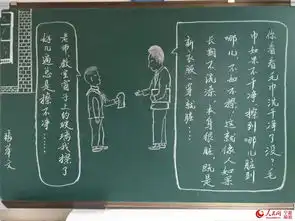 老师，教室窗子上的玻璃我擦了
好几遍总是擦不净……
你看看毛巾洗干净了没？毛
巾如果不干净，擦到哪儿脏到
哪儿，不如不擦。这就像人如果
长期不洗澡，本身很脏，既是
新衣服一穿就脏……
杨华文
人民网